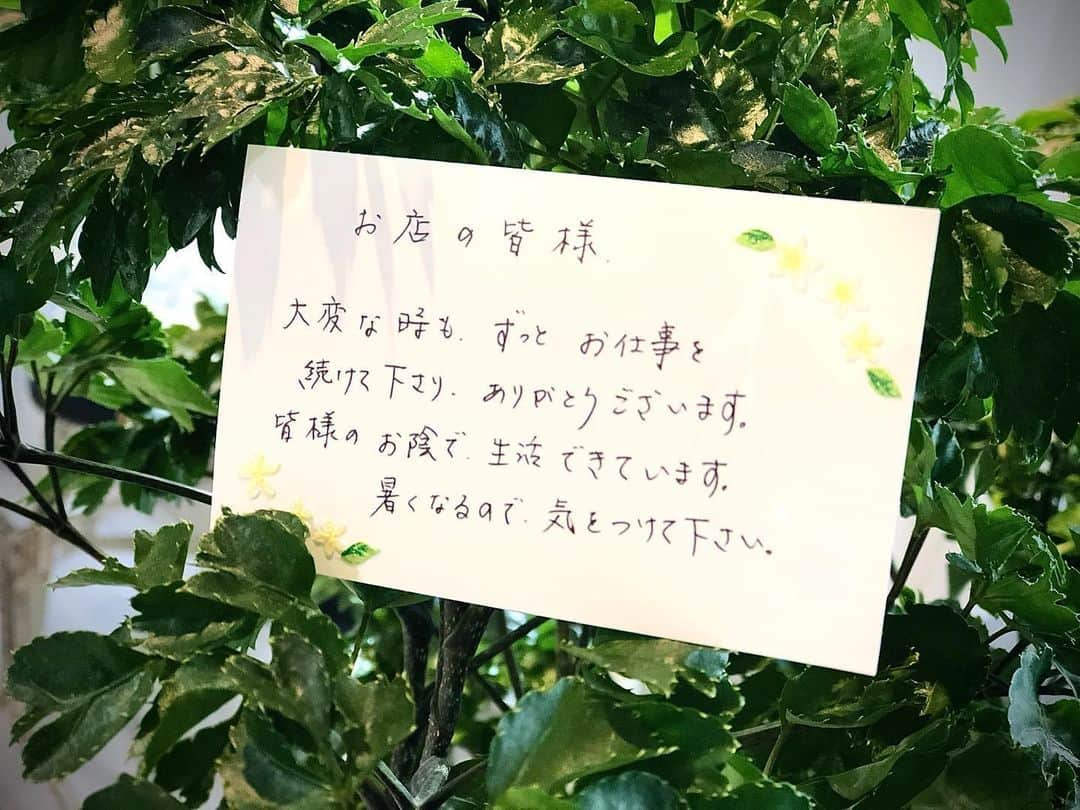 お店の皆様.
大変な時も、ずっとお仕事を
続けて下さり、ありがとうございます。
皆様のお陰で、生活できています。
暑くなるので、気をつけて下さい。